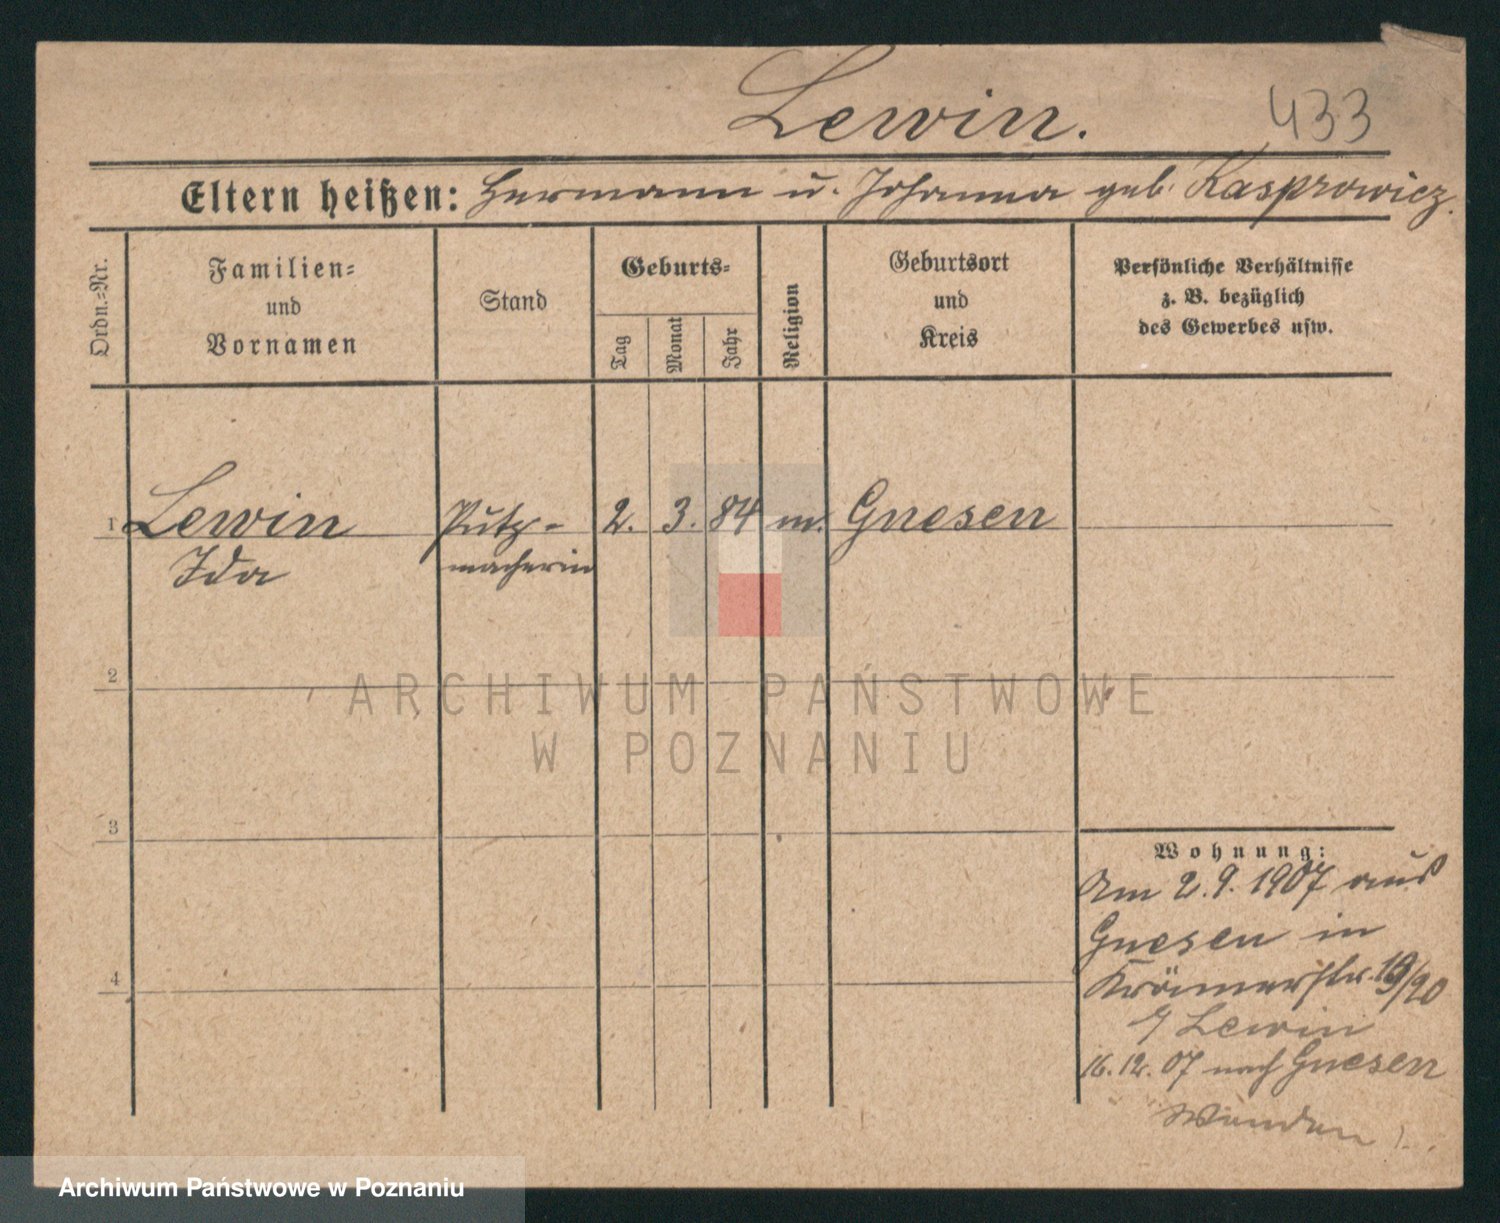 Lewin. 433
Eltern heißen: Hermann u. Johanna geb. Kasprowicz.
Ordn.=Nr.
Familien=
und
Vornamen
Stand
Geburts=
Tag
Monat
Jahr
Religion
Geburtsort
und
Kreis
Persönliche Verhältnisse
z. B. bezüglich
des Gewerbes usw.
1 Lewin Putz- 2. 3. 84 m. Gnesen
Ida macherin
2
3
4
Wohnung:
Am 2.9.1907 aus
Gnesen in
Krämerstr. 19/20
Lewin
16.12.07 nach Gnesen
ARCHIWUM PAŃSTWOWE
W POZNANIU
Archiwum Państwowe w Poznaniu